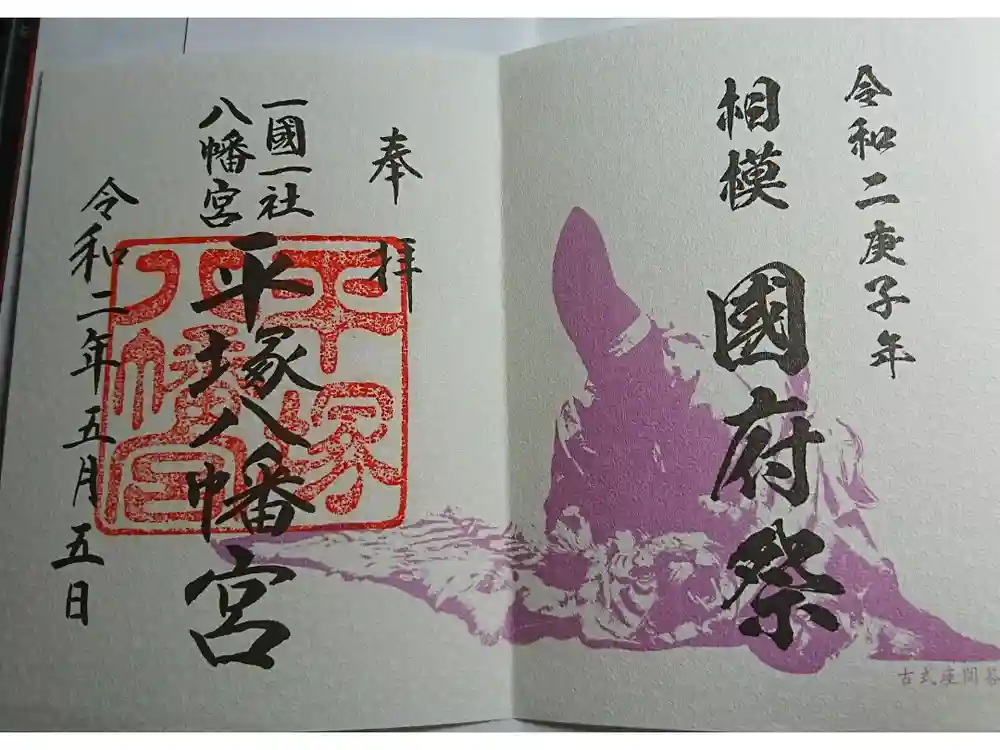 令和二庚子年
相模
國府祭
古式座問答
奉拝
一國一社
八幡宮
平塚八幡宮
平塚
八幡宮
令和二年五月五日